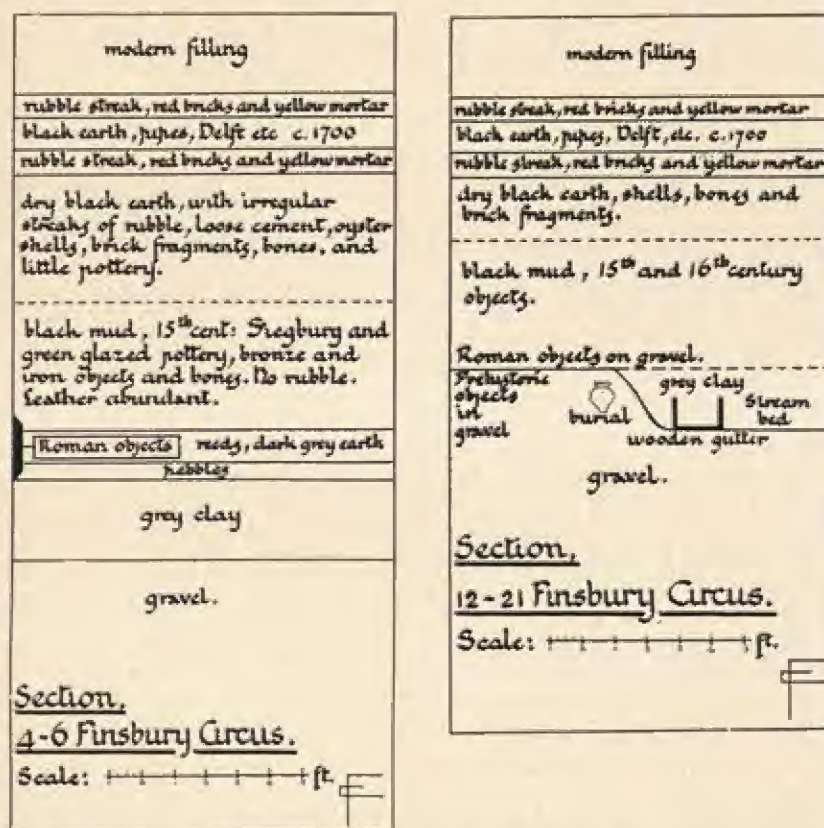 modern filling
rubble streak, red bricks and yellow mortar
black earth, pipes, Delft etc c. 1700
rubble streak, red bricks and yellow mortar
dry black earth, with irregular
streaks of rubble, loose cement, oyster
shells, brick fragments, bones, and
little pottery.
black mud, 15th cent: Siegburg and
green glazed pottery, bronze and
iron objects and bones. No rubble.
Leather abundant.
Roman objects reeds, dark grey earth
pebbles
grey clay
gravel.
Section,
4-6 Finsbury Circus.
Scale: ft.
modern filling
rubble streak, red bricks and yellow mortar
black earth, pipes, Delft, etc. c. 1700
rubble streak, red bricks and yellow mortar
dry black earth, shells, bones and
brick fragments.
black mud, 15th and 16th century
objects.
Roman objects on gravel.
Prehistoric
objects
in
gravel
burial
grey clay
Stream
bed
wooden gutter
gravel.
Section,
12-21 Finsbury Circus.
Scale: ft.